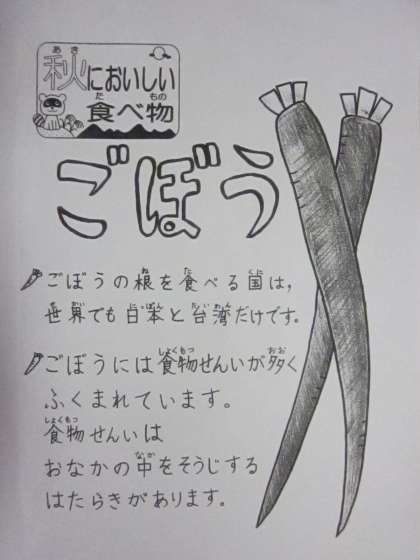 秋においしい
食べ物
ごぼう
ごぼうの根を食べる国は、
世界でも日本と台湾だけです。
ごぼうには食物せんいが多く
ふくまれています。
食物せんいは
おなかの中をそうじする
はたらきがあります。